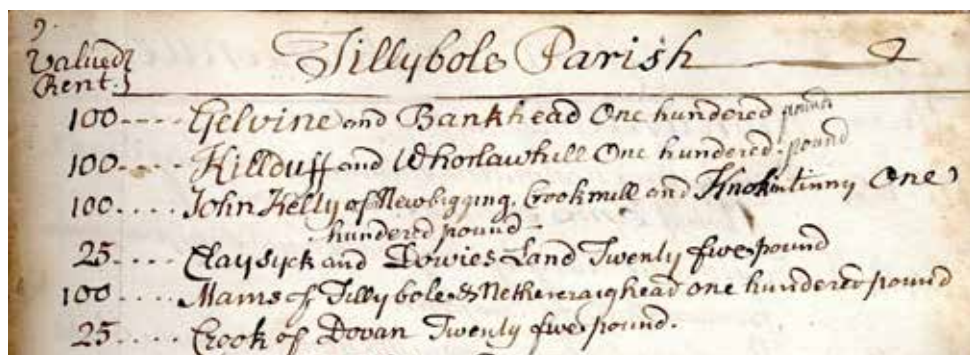 2.
Valued Rent.
Tillybole Parish 2
100 ---- Gelvine and Bankhead One hundered pound
100 ---- Killduff and Whorlawhill One hundered pound
100 .... John Kelly of Newbigging, Crookmill and Knokintinny One
hundered pound
25 .... Claysyck and Dowies Land Twenty five pound
100 .... Mains of Tillybole & Nethercraighead one hundered pound
25 .... Crook of Dovan Twenty five pound.